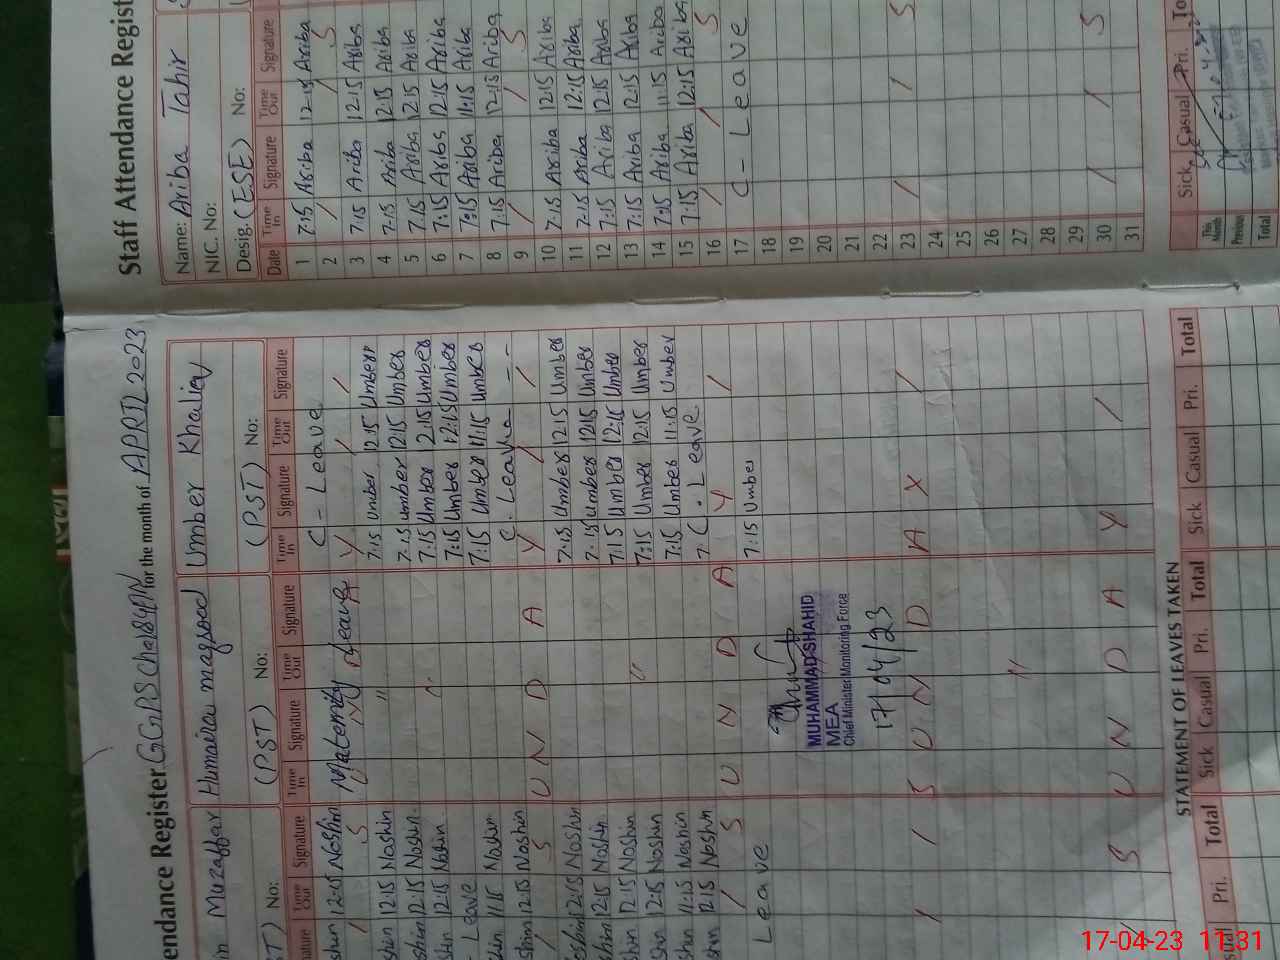 endance Register GGPS Chak84PN for the month of APRIL 2023
in Muzaffar
Humaira maqsood
Umber Khaliq
ST) No:
(PST) No:
(PST) No:
nature Time Out Signature
Time In Signature Time Out Signature
Time In Signature Time Out Signature
shin 12:15 Noshin
Maternity Leave
C - Leave
S U N D A Y
shin 12:15 Noshin
7:15 Umber 12:15 Umber
shin 12:15 Noshin
7:15 Umber 12:15 Umber
shin 12:15 Noshin
7:15 Umber 12:15 Umber
- Leave
7:15 Umber 12:15 Umber
11:15 Noshin
7:15 Umber 11:15 Umber
shin 12:15 Noshin
C. Leave
S U N D A Y
12:15 Noshin
7:15 Umber 12:15 Umber
shin 12:15 Noshin
7:15 Umber 12:15 Umber
shin 12:15 Noshin
7:15 Umber 12:15 Umber
shin 12:15 Noshin
7:15 Umber 12:15 Umber
shin 11:15 Noshin
7:15 Umber 11:15 Umber
shin 12:15 Noshin
C. Leave
S U N D A Y
Leave
7:15 Umber
MUHAMMAD SHAHID
MEA
Chief Minister Monitoring Force
17/04/23
S U N D A Y
S U N D A Y
STATEMENT OF LEAVES TAKEN
sual Pri. Total
Sick Casual Pri. Total
Sick Casual Pri. Total
Staff Attendance Regist
Name: Ariba Tahir
NIC. No:
Desig. (ESE) No:
Date Time In Signature Time Out Signature
1 7:15 Ariba 12:15 Ariba
2 S
3 7:15 Ariba 12:15 Ariba
4 7:15 Ariba 12:15 Ariba
5 7:15 Ariba 12:15 Ariba
6 7:15 Ariba 12:15 Ariba
7 7:15 Ariba 11:15 Ariba
8 7:15 Ariba 12:15 Ariba
9 S
10 7:15 Ariba 12:15 Ariba
11 7:15 Ariba 12:15 Ariba
12 7:15 Ariba 12:15 Ariba
13 7:15 Ariba 12:15 Ariba
14 7:15 Ariba 11:15 Ariba
15 7:15 Ariba 12:15 Ariba
16 S
17 C - Leave
18
19
20
21
22
23 S
24
25
26
27
28
29
30 S
31
Sick Casual Pri. To
This Month
Previous
Total
17-04-23 11:31